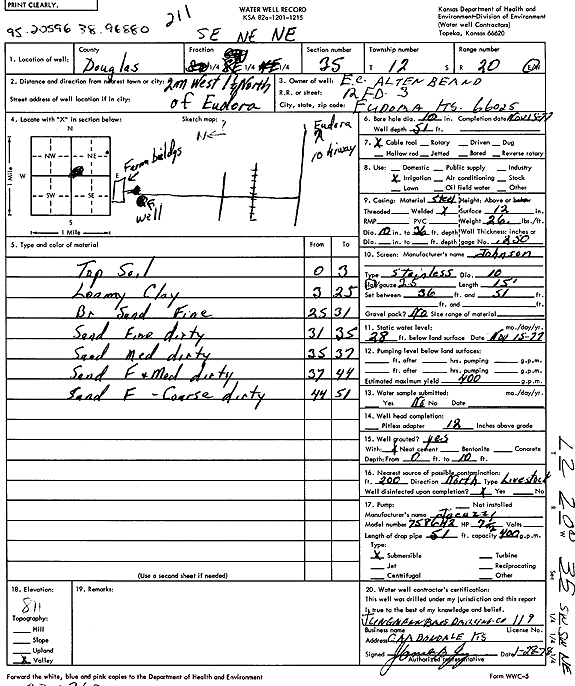 PRINT CLEARLY.
WATER WELL RECORD
KSA 82a-1201-1215
Kansas Department of Health and
Environment-Division of Environment
(Water well Contractors)
Topeka, Kansas 66620
95.20596 38.96880
211
SE NE NE
1. Location of well:
County
Douglas
Fraction
1/4 1/4 1/4
Section number
35
Township number
T 12 S
Range number
R 20 E/W
2. Distance and direction from nearest town or city: 2m West 1 1/2 North
of Eudora
Street address of well location if in city:
3. Owner of well: E.C. Altenbernd
R.R. or street: RFD. 3
City, state, zip code: Eudora Ks. 66025
4. Locate with "X" in section below:
Sketch map:
N
NW
NE
W
E
SW
SE
S
1 Mile
1 Mile
Farm bldgs
well
N
Eudora
10 hiway
6. Bore hole dia. 10 in. Completion date Nov 15-77
Well depth 51 ft.
7. X Cable tool Rotary Driven Dug
Hollow rod Jetted Bored Reverse rotary
8. Use: Domestic Public supply Industry
X Irrigation Air conditioning Stock
Lawn Oil field water Other
9. Casing: Material Steel Height: Above or below
Threaded Welded X Surface 12 in.
RMP PVC Weight 26 lbs./ft.
Dia. 10 in. to 36 ft. depth Wall Thickness: inches or
Dia. in. to ft. depth gage No. .250
10. Screen: Manufacturer's name Johnson
Type Stainless Dia. 10
Slot/gauze 25 Length 15'
Set between 36 ft. and 51 ft.
ft. and ft.
Gravel pack? No Size range of material
11. Static water level: mo./day/yr.
28 ft. below land surface Date Nov 15-77
12. Pumping level below land surfaces:
ft. after hrs. pumping g.p.m.
ft. after hrs. pumping g.p.m.
Estimated maximum yield 400 g.p.m.
13. Water sample submitted: mo./day/yr.
Yes No Date
14. Well head completion:
Pitless adapter 12 Inches above grade
15. Well grouted? yes
With: X Neat cement Bentonite Concrete
Depth: From 0 ft. to 10 ft.
16. Nearest source of possible contamination:
ft. 200 Direction North Type Livestock
Well disinfected upon completion? X Yes No
17. Pump: Not installed
Manufacturer's name Jacuzzi
Model number HP 7 1/2 Volts
Length of drop pipe 51 ft. capacity 400 g.p.m.
Type:
X Submersible Turbine
Jet Reciprocating
Centrifugal Other
5. Type and color of material From To
Top Soil 0 3
Loamy Clay 3 25
Br Sand Fine 25 31
Sand Fine dirty 31 35
Sand Med dirty 35 37
Sand F & Med dirty 37 44
Sand F - Coarse dirty 44 51
(Use a second sheet if needed)
18. Elevation:
811
Topography:
Hill
Slope
Upland
X Valley
19. Remarks:
20. Water well contractor's certification:
This well was drilled under my jurisdiction and this report
is true to the best of my knowledge and belief.
Drilling Co 119
Business name License No.
Address Carbondale Ks
Signed Date 1-28-78
Authorized representative
Forward the white, blue and pink copies to the Department of Health and Environment
Form WWC-5
T 12 R 20 W Sec 35 SW SW NE
1/4 1/4 1/4